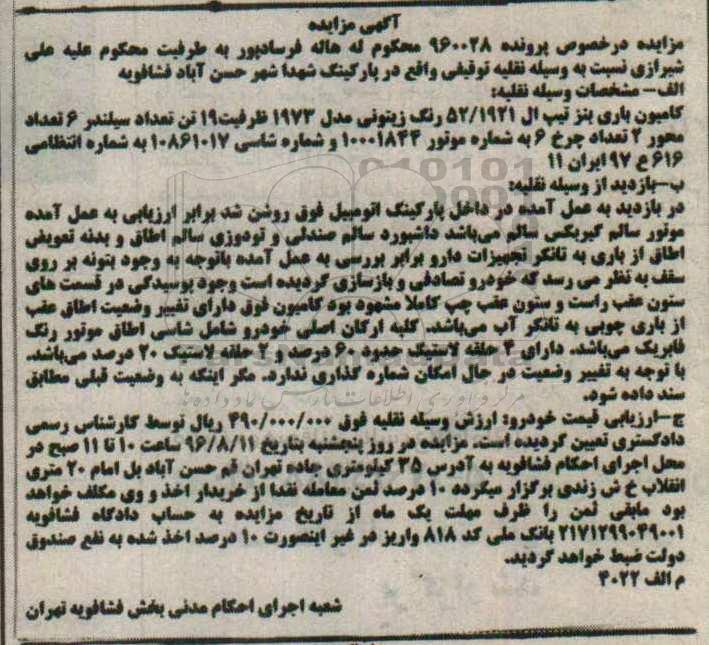 آگهی مزایده
مزایده درخصوص پرونده ۹۶۰۰۲۸ محکوم له هاله فرسادپور به طرفیت محکوم علیه علی
شیرازی نسبت به وسیله نقلیه توقیفی واقع در پارکینگ شهدا شهر حسن آباد فشافویه
الف- مشخصات وسیله نقلیه:
کامیون باری بنز تیپ ال ۵۲/۱۹۲۱ رنگ زیتونی مدل ۱۹۷۳ ظرفیت۱۹ تن تعداد سیلندر ۶ تعداد
محور ۲ تعداد چرخ ۶ به شماره موتور ۱۰۰۰۱۸۴۴ و شماره شاسی ۱۰۸۶۱۰۱۷ به شماره انتظامی
۶۱۶ ع ۹۷ ایران ۱۱
ب-بازدید از وسیله نقلیه:
در بازدید به عمل آمده در داخل پارکینگ اتومبیل فوق روشن شد برابر ارزیابی به عمل آمده
موتور سالم گیربکس سالم می‌باشد داشبورد سالم صندلی و تودوزی سالم اطاق و بدنه تعویض
اطاق از باری به تانکر تجهیزات دارو برابر بررسی به عمل آمده باتوجه به وجود بتونه بر روی
سقف به نظر می رسد که خودرو تصادفی و بازسازی گردیده است وجود پوسیدگی در قسمت های
ستون عقب راست و ستون عقب چپ کاملا مشهود بود کامیون فوق دارای تغییر وضعیت اطاق عقب
از باری چوبی به تانکر آب می‌باشد. کلیه ارکان اصلی خودرو شامل شاسی اطاق موتور رنگ
فابریک می‌باشد. دارای ۴ حلقه لاستیک حدود ۶۰ درصد و ۲ حلقه لاستیک ۲۰ درصد می‌باشد.
با توجه به تغییر وضعیت در حال امکان شماره گذاری ندارد. مگر اینکه به وضعیت قبلی مطابق
سند داده شود.
ج-ارزیابی قیمت خودرو: ارزش وسیله نقلیه فوق ۴۹۰/۰۰۰/۰۰۰ ریال توسط کارشناس رسمی
دادگستری تعیین گردیده است. مزایده در روز پنجشنبه بتاریخ ۹۶/۸/۱۱ ساعت ۱۰ تا ۱۱ صبح در
محل اجرای احکام فشافویه به آدرس ۳۵ کیلومتری جاده تهران قم حسن آباد پل امام ۲۰ متری
انقلاب خ ش زندی برگزار میگردد ۱۰ درصد ثمن معامله نقدا از خریدار اخذ و وی مکلف خواهد
بود مابقی ثمن را ظرف مهلت یک ماه از تاریخ مزایده به حساب دادگاه فشافویه
۲۱۷۱۲۹۹۰۴۹۰۰۱ بانک ملی کد ۸۱۸ واریز در غیر اینصورت ۱۰ درصد اخذ شده به نفع صندوق
دولت ضبط خواهد گردید.
م الف ۴۰۲۲
شعبه اجرای احکام مدنی بخش فشافویه تهران